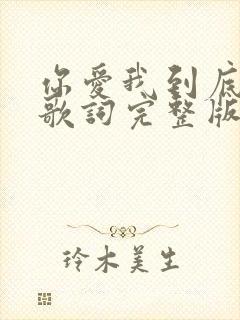 你愛我到底
歌詞完整版
玲木美生